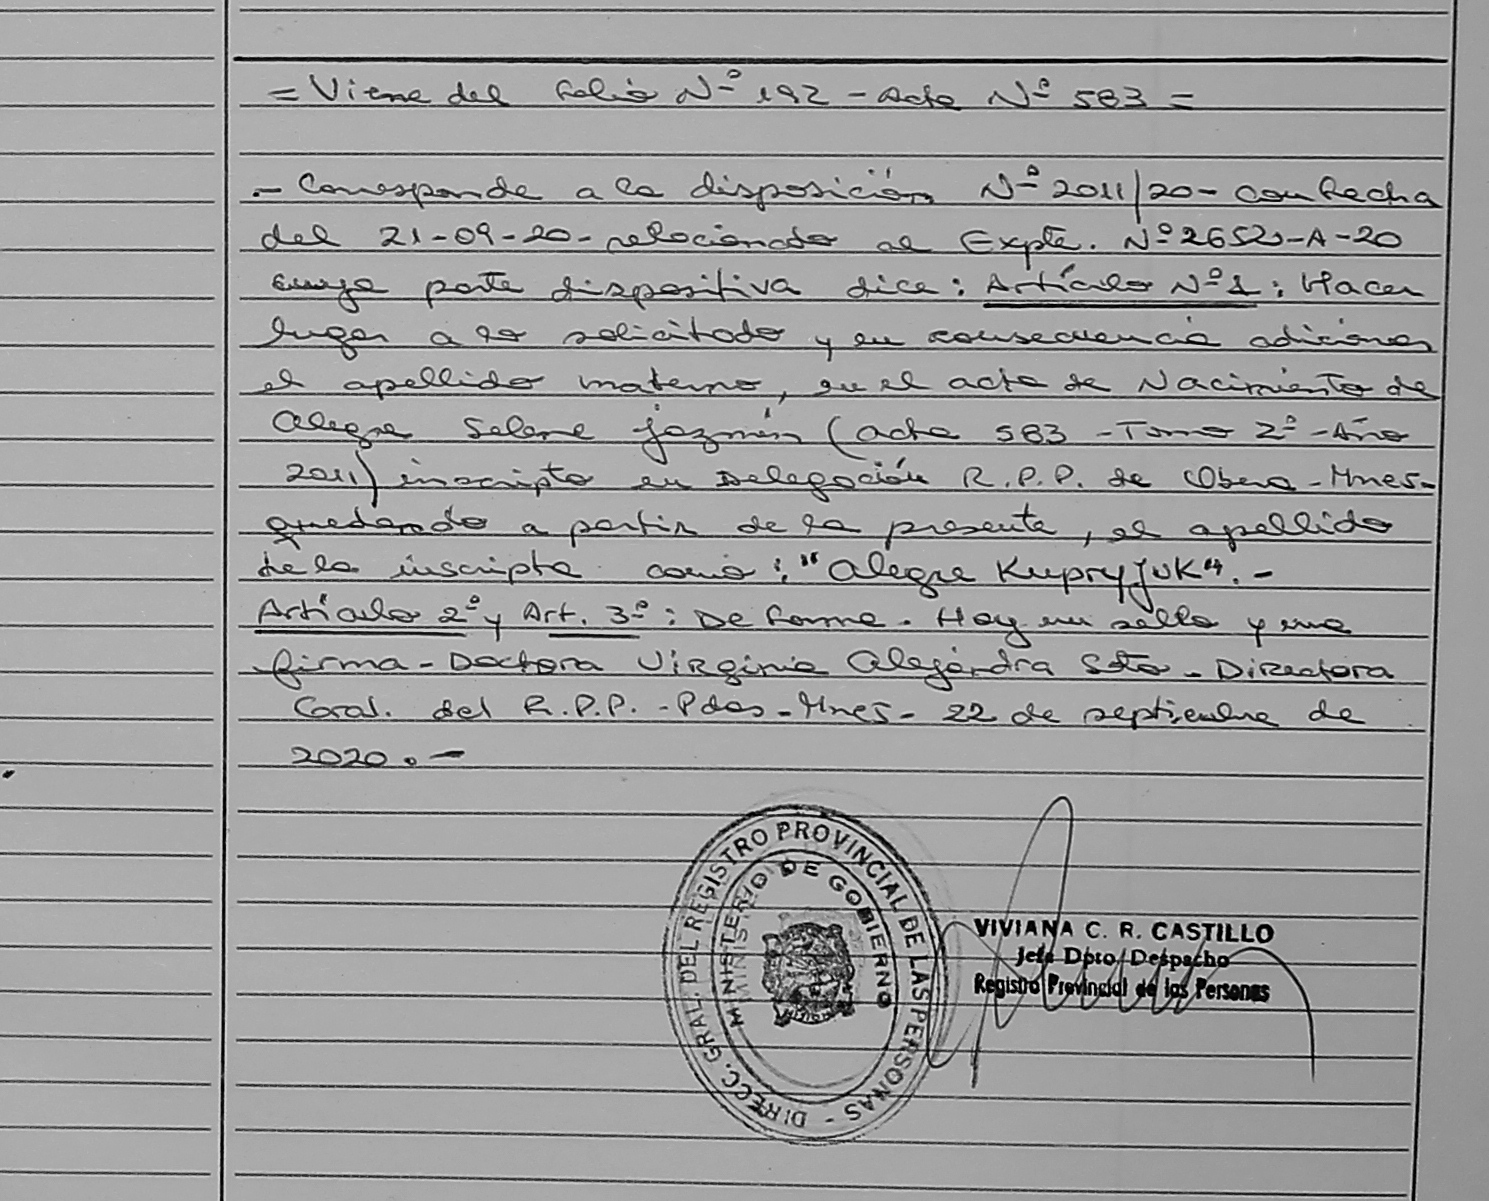 = Viene del folio Nº 192 - Acta Nº 583 =
.- Corresponde a la disposición Nº 2011/20 - con fecha
del 21-09-20- relacionado al Expte. Nº 2652-A-20
cuya parte dispositiva dice: Artículo Nº1: Hacer
lugar a lo solicitado y en consecuencia adicionar
el apellido materno, en el acta de Nacimiento de
Alegre Selene jazmín (acta 583 - Tomo 2º - Año
2011) inscripta en Delegación R.P.P. de Obera - Mnes-
quedando a partir de la presente, el apellido
de la inscripta como: "Alegre Kupryjuk". -
Artículo 2º y Art. 3º: De forma. Hay un sello y una
firma - Doctora Virginia Alejandra Soto - Directora
Gral. del R.P.P. - Pdas - Mnes - 22 de septiembre de
2020. -
DIRECC. GRAL. DEL REGISTRO PROVINCIAL DE LAS PERSONAS -
MINISTERIO DE GOBIERNO
VIVIANA C. R. CASTILLO
Jefa Dpto. Despacho
Registro Provincial de las Personas